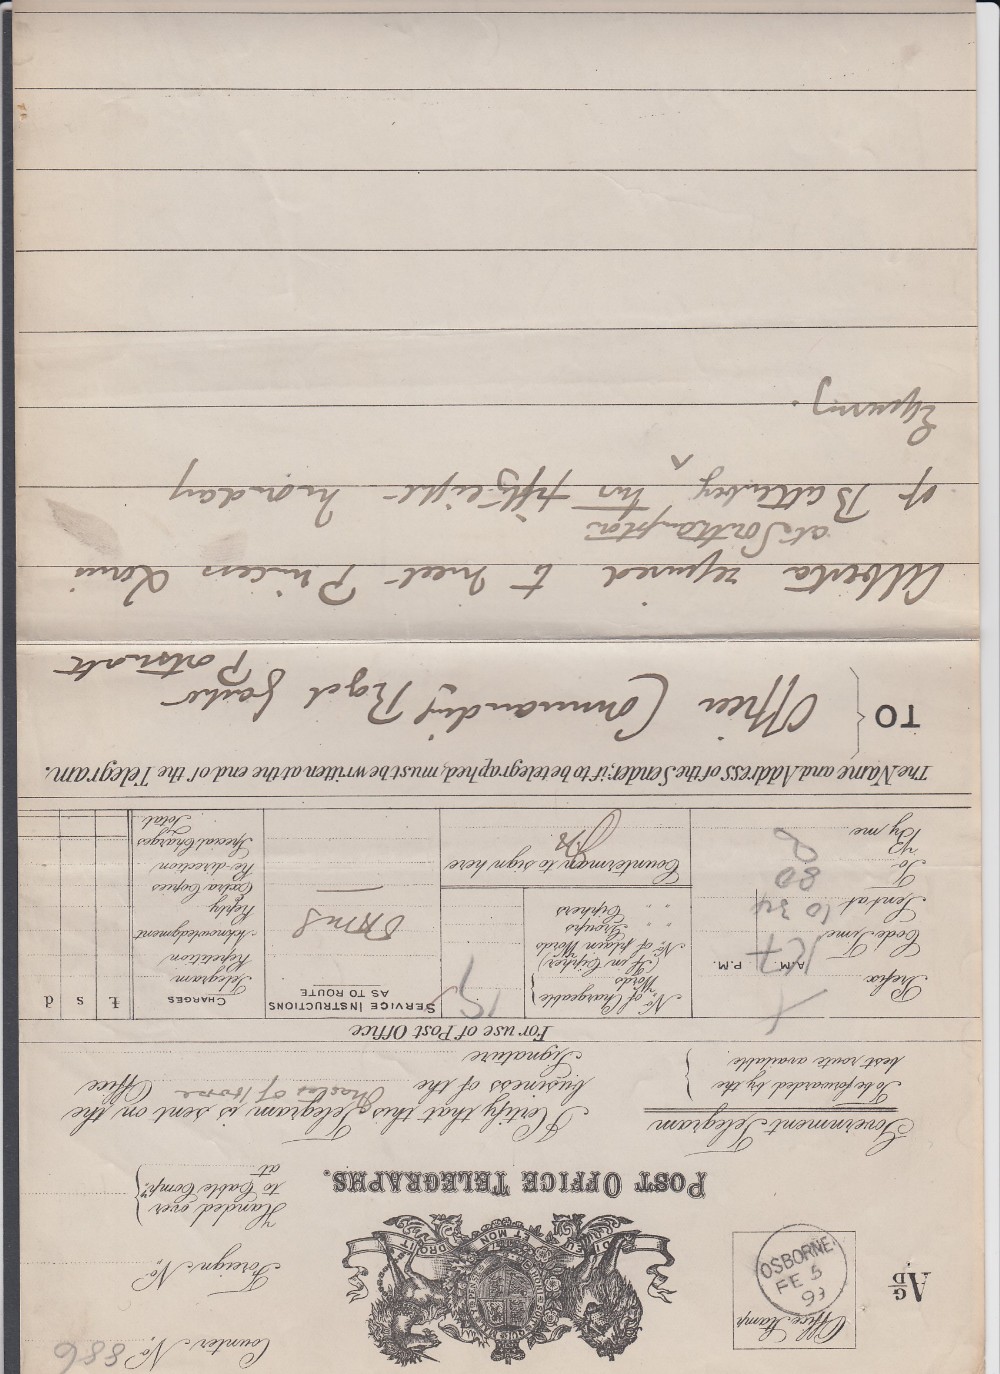 Counter No. 886
Foreign No.
Handed over
to Cable Compy.
at
A G/D
Office Stamp
OSBORNE
FE 5
93
DIEU ET MON DROIT
HONI SOIT QUI MAL Y PENSE
POST OFFICE TELEGRAPHS.
Government Telegram
To be forwarded by the
best route available.
I Certify that this Telegram is sent on the
business of the Master of Horse Office
Signature
For use of Post Office
Prefix
A.M. P.M.
Code Time
Sent at 10 34
To
By me
No. of Chargeable
Words
(If in Cipher)
No. of plain Words
" Groups
" Ciphers
15
Counterman to sign here
SERVICE INSTRUCTIONS
AS TO ROUTE
OHMS
CHARGES £ s d
Telegram
Repetition
Acknowledgment
Reply
Extra Copies
Re-direction
Special Charges
Total
The Name and Address of the Sender, if to be telegraphed, must be written at the end of the Telegram.
TO Officer Commanding Royal Yacht
Portsmouth
Alberta required to meet Princess Louis
at Southampton
of Battenberg two fifty eight Monday
Equerry.